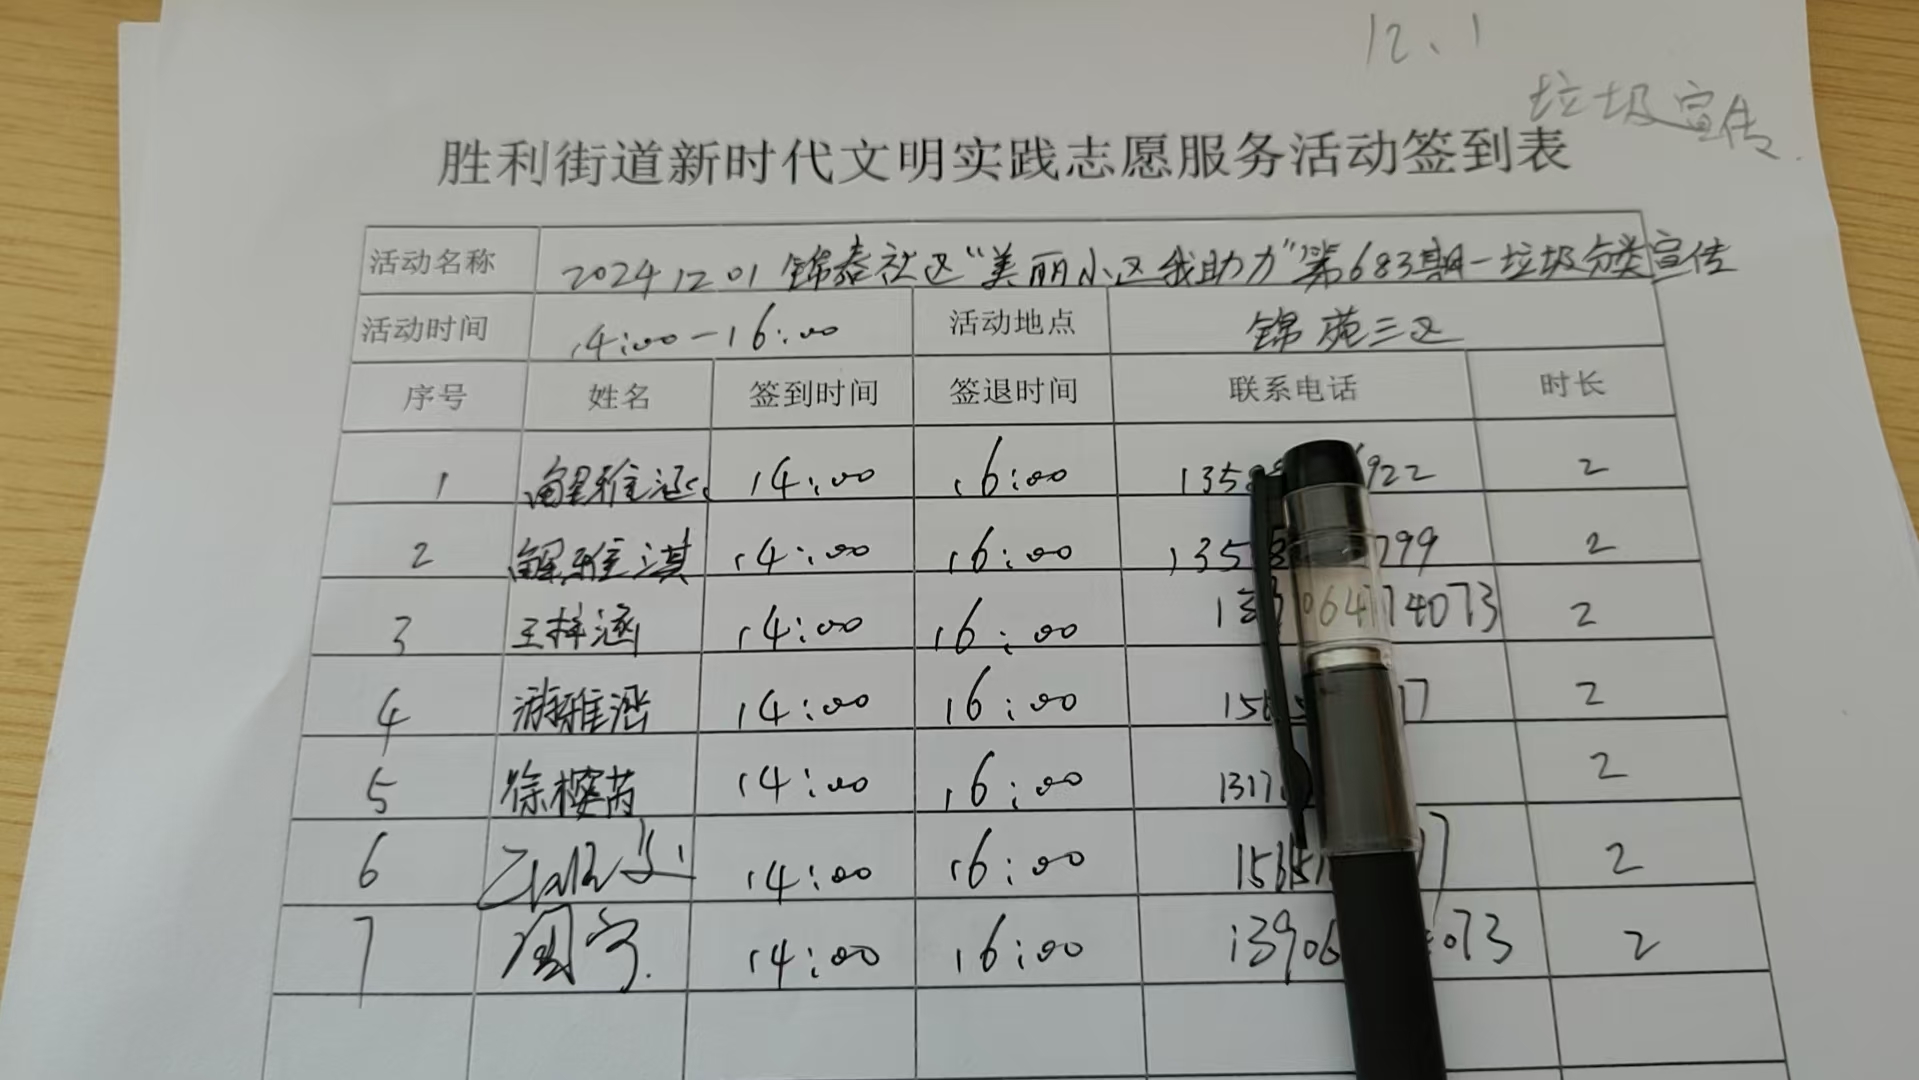 12、1
垃圾宣传
胜利街道新时代文明实践志愿服务活动签到表
活动名称 20241201锦泰社区“美丽小区我助力”第683期-垃圾分类宣传
活动时间 14:00-16:00 活动地点 锦苑三区
序号 姓名 签到时间 签退时间 联系电话 时长
1 解雅涵 14:00 16:00 1358 922 2
2 解雅淇 14:00 16:00 1358 799 2
3 王梓涵 14:00 16:00 4073 2
4 游雅涵 14:00 16:00 17 2
5 徐樱芮 14:00 16:00 1317 2
6 14:00 16:00 2
7 周宇 14:00 16:00 13906 073 2